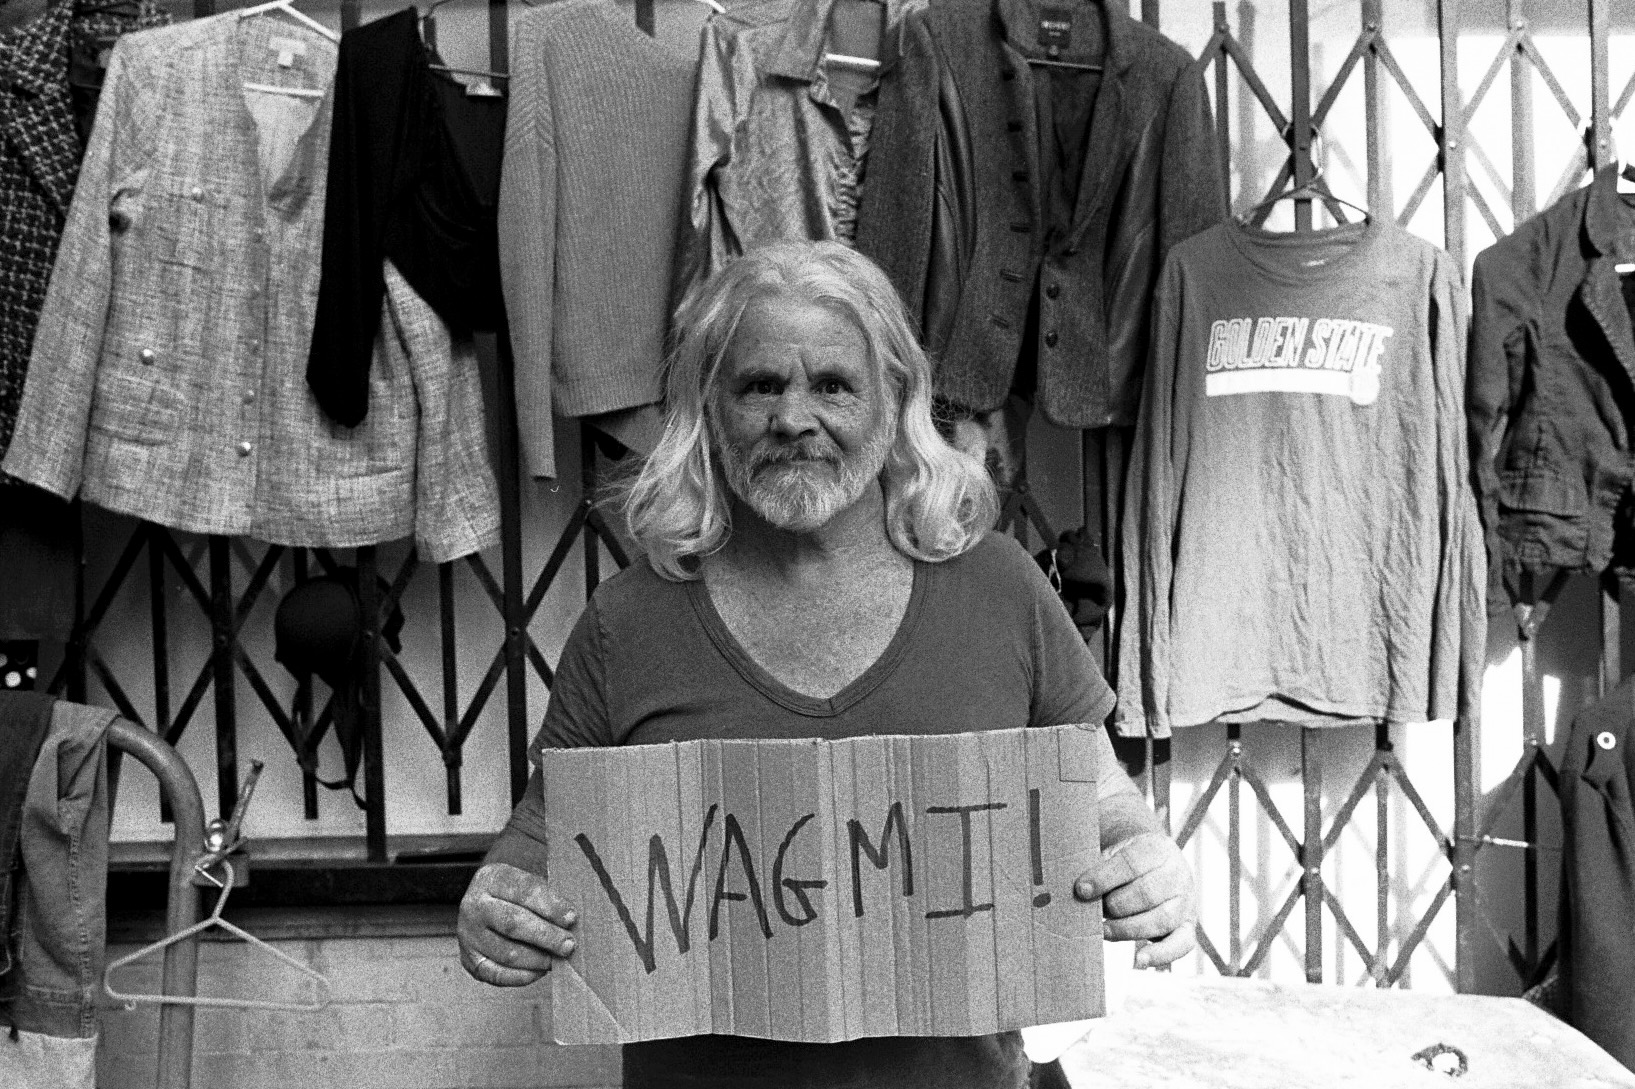 GOLDEN STATE
WAGMI!